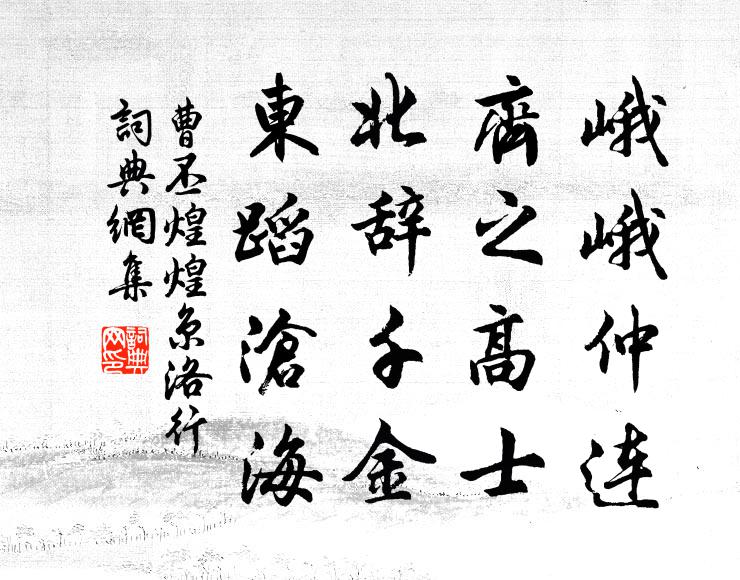 峨峨仲連
齊之高士
北辞千金
東蹈滄海
曹丕煌煌京洛行
詞典網集
詞典網印